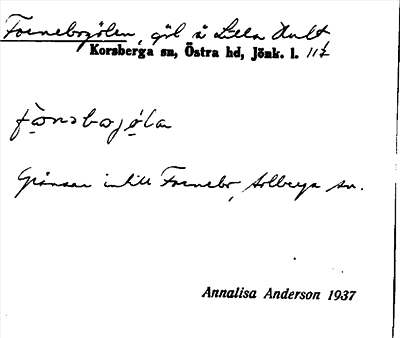 Fornebogölen, göl å Lilla Hult
Korsberga sn, Östra hd, Jönk. l. 11½
fornabogöla
Gränsar intill Fornebo, Solberga sn.
Annalisa Anderson 1937